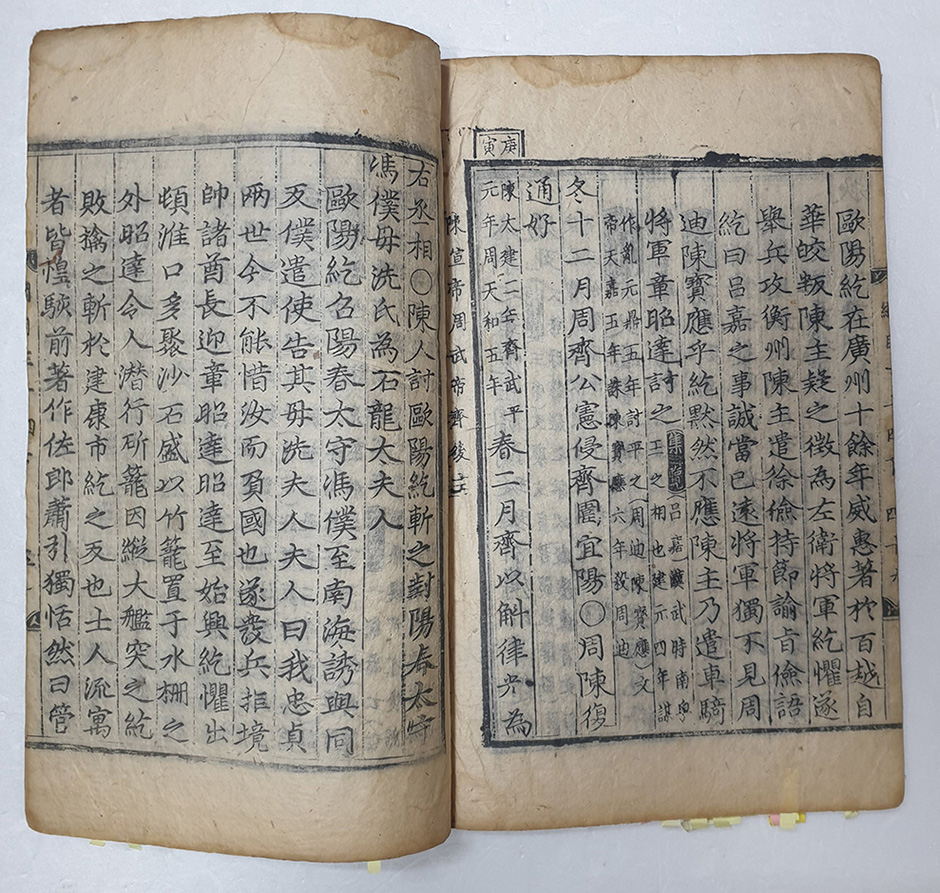 歐陽紇在廣州十餘年威惠著於百越自
華皎叛陳主疑之徵為左衛將軍紇懼遂
舉兵攻衡州陳主遣徐儉持節諭旨儉語
紇曰呂嘉之事誠當已遠將軍獨不見周
迪陳寶應乎紇默然不應陳主乃遣車騎
將軍章昭達討之集覽呂嘉漢武時南粤
王之相也建元四年謀
作亂元鼎五年討平之周迪陳寶應文
帝天嘉五年誅陳寶應六年殺周迪
冬十二月周齊公憲侵齊圍宜陽〇周陳復
通好
庚寅
陳太建二年齊武平
元年周天和五年
春二月齊以斛律光為
陳宣帝周武帝齊後主
右丞相〇陳人討歐陽紇斬之封陽春太守
馮僕母洗氏為石龍太夫人
歐陽紇召陽春太守馮僕至南海誘與同
反僕遣使告其母洗夫人夫人曰我忠貞
兩世今不能惜汝而負國也遂發兵拒境
帥諸酋長迎章昭達昭達至始興紇懼出
頓洭口多聚沙石盛以竹籠置于水柵之
外昭達令人潛行斫籠因縱大艦突之紇
敗擒之斬於建康市紇之反也士人流寓
者皆惶駭前著作佐郎蕭引獨恬然曰管